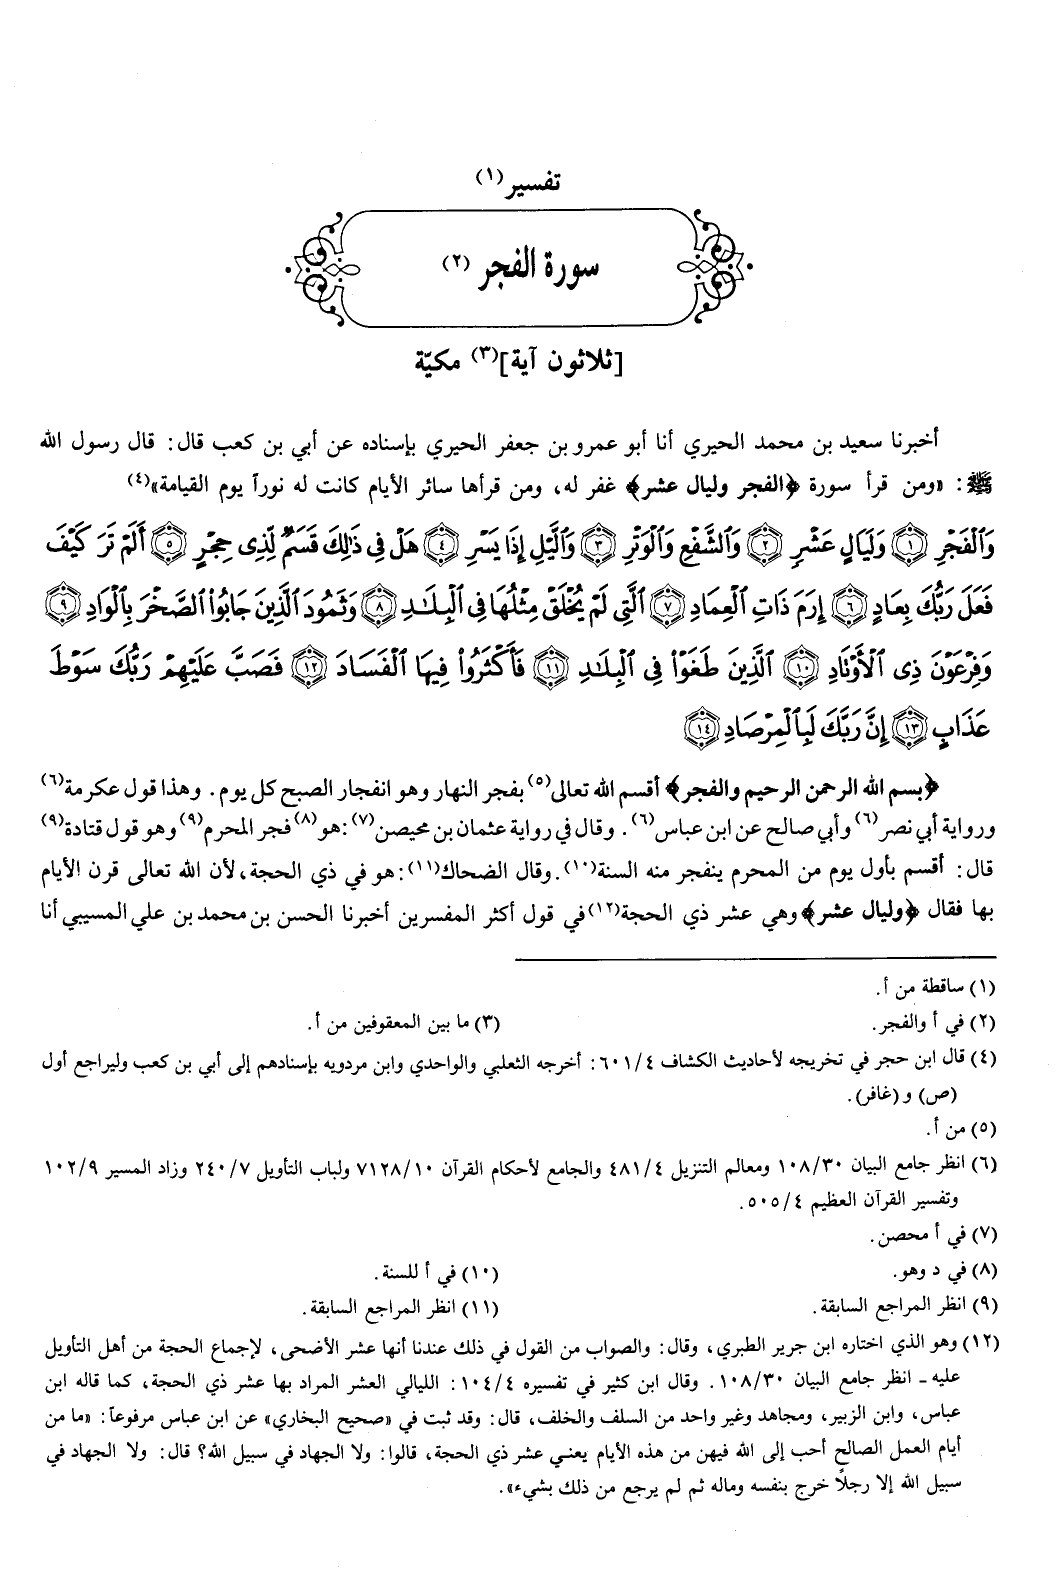 تفسير(١)
سورة الفجر (٢)
[ثلاثون آية](٣) مكيّة
أخبرنا سعيد بن محمد الحيري أنا أبو عمرو بن جعفر الحيري بإسناده عن أبي بن كعب قال: قال رسول الله
ﷺ: «ومن قرأ سورة ﴿الفجر وليال عشر﴾ غفر له، ومن قرأها سائر الأيام كانت له نوراً يوم القيامة»(٤)
وَٱلۡفَجۡرِ ١ وَلَيَالٍ عَشۡرٖ ٢ وَٱلشَّفۡعِ وَٱلۡوَتۡرِ ٣ وَٱلَّيۡلِ إِذَا يَسۡرِ ٤ هَلۡ فِي ذَٰلِكَ قَسَمٞ لِّذِي حِجۡرٍ ٥ أَلَمۡ تَرَ كَيۡفَ
فَعَلَ رَبُّكَ بِعَادٍ ٦ إِرَمَ ذَاتِ ٱلۡعِمَادِ ٧ ٱلَّتِي لَمۡ يُخۡلَقۡ مِثۡلُهَا فِي ٱلۡبِلَٰدِ ٨ وَثَمُودَ ٱلَّذِينَ جَابُواْ ٱلصَّخۡرَ بِٱلۡوَادِ ٩
وَفِرۡعَوۡنَ ذِي ٱلۡأَوۡتَادِ ١٠ ٱلَّذِينَ طَغَوۡاْ فِي ٱلۡبِلَٰدِ ١١ فَأَكۡثَرُواْ فِيهَا ٱلۡفَسَادَ ١٢ فَصَبَّ عَلَيۡهِمۡ رَبُّكَ سَوۡطَ
عَذَابٍ ١٣ إِنَّ رَبَّكَ لَبِٱلۡمِرۡصَادِ ١٤
﴿بسم الله الرحمن الرحيم والفجر﴾ أقسم الله تعالى(٥) بفجر النهار وهو انفجار الصبح كل يوم. وهذا قول عكرمة(٦)
ورواية أبي نصر(٦) وأبي صالح عن ابن عباس(٦). وقال في رواية عثمان بن محيصن(٧): هو(٨) فجر المحرم(٩) وهو قول قتادة(٩)
قال: أقسم بأول يوم من المحرم ينفجر منه السنة(١٠). وقال الضحاك(١١): هو في ذي الحجة، لأن الله تعالى قرن الأيام
بها فقال ﴿وليال عشر﴾ وهي عشر ذي الحجة(١٢) في قول أكثر المفسرين أخبرنا الحسن بن محمد بن علي المسيبي أنا
(١) ساقطة من أ.
(٢) في أ والفجر. (٣) ما بين المعقوفين من أ.
(٤) قال ابن حجر في تخريجه لأحاديث الكشاف ٦٠١/٤: أخرجه الثعلبي والواحدي وابن مردويه بإسنادهم إلى أبي بن كعب وليراجع أول
(ص) و (غافر).
(٥) من أ.
(٦) انظر جامع البيان ١٠٨/٣٠ ومعالم التنزيل ٤٨١/٤ والجامع لأحكام القرآن ٧١٢٨/١٠ ولباب التأويل ٢٤٠/٧ وزاد المسير ١٠٢/٩
وتفسير القرآن العظيم ٥٠٥/٤.
(٧) في أ محصن.
(٨) في د وهو. (١٠) في أ للسنة.
(٩) انظر المراجع السابقة. (١١) انظر المراجع السابقة.
(١٢) وهو الذي اختاره ابن جرير الطبري، وقال: والصواب من القول في ذلك عندنا أنها عشر الأضحى، لإجماع الحجة من أهل التأويل
عليه ـ انظر جامع البيان ١٠٨/٣٠. وقال ابن كثير في تفسيره ١٠٤/٤: الليالي العشر المراد بها عشر ذي الحجة، كما قاله ابن
عباس، وابن الزبير، ومجاهد وغير واحد من السلف والخلف، قال: وقد ثبت في «صحيح البخاري» عن ابن عباس مرفوعاً: «ما من
أيام العمل الصالح أحب إلى الله فيهن من هذه الأيام يعني عشر ذي الحجة، قالوا: ولا الجهاد في سبيل الله؟ قال: ولا الجهاد في
سبيل الله إلا رجلاً خرج بنفسه وماله ثم لم يرجع من ذلك بشيء».